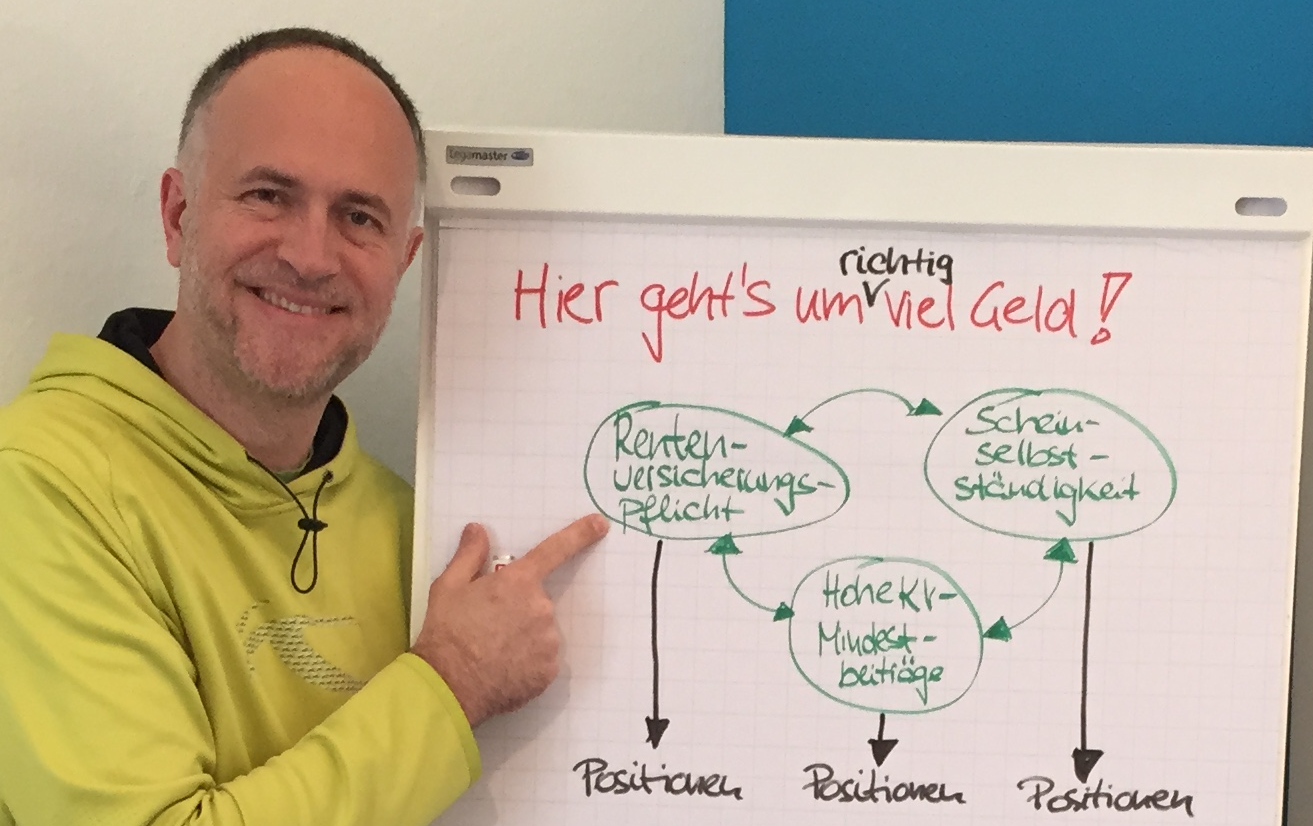 Legamaster
Hier geht's um richtig viel Geld!
Renten-
versicherungs-
pflicht
Schein-
selbst-
ständigkeit
Hohe KV-
Mindest-
beiträge
Positionen
Positionen
Positionen